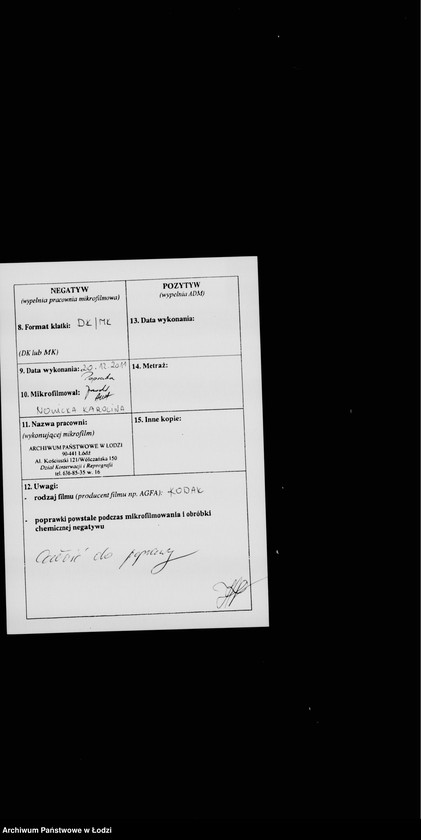 NEGATYW
(wypełnia pracownia mikrofilmowa)
8. Format klatki: DK/MK
(DK lub MK)
9. Data wykonania: 20.12.2011
10. Mikrofilmował:
NOWICKA KAROLINA
11. Nazwa pracowni:
(wykonującej mikrofilm)
ARCHIWUM PAŃSTWOWE W ŁODZI
90-441 Łódź
Al. Kościuszki 121/Wólczańska 150
Dział Konserwacji i Reprografii
tel. 676-85-35 w. 16
POZYTYW
(wypełnia ADM)
13. Data wykonania:
14. Metraż:
15. Inne kopie:
12. Uwagi:
- rodzaj filmu (producent filmu np. AGFA): KODAK
- poprawki powstałe podczas mikrofilmowania i obróbki
chemicznej negatywu
do poprawy
Archiwum Państwowe w Łodzi